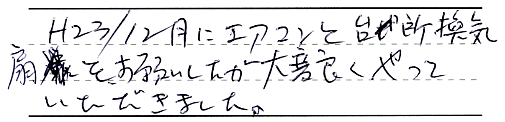 H23/12月にエアコンと台所換気
扇をお願いしたが大変良くやって
いただきました。